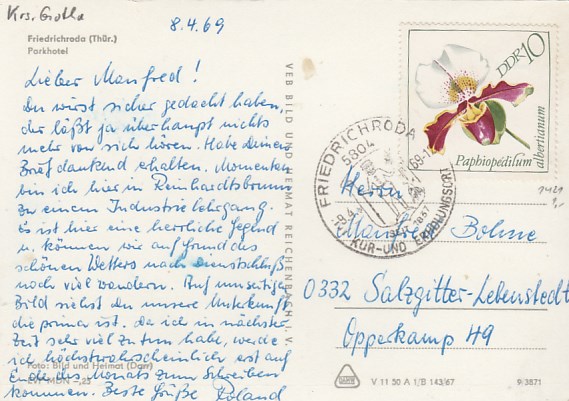 Krs. Gotha
8.4.69
Friedrichroda (Thür.)
Parkhotel
Lieber Manfred!
Du wirst sicher gedacht haben,
der läßt ja überhaupt nichts
mehr von sich hören. Habe Deinen
Brief dankend erhalten. Momentan
bin ich hier in Reinhardtsbrunn
zu einem Industrielehrgang.
Es ist hier eine herrliche Gegend
u. können wir auf Grund des
schönen Wetters nach Dienstschluß
noch viel wandern. Auf umseitigen
Bild siehst Du unsere Unterkunft
die prima ist. Da ich in nächster
Zeit sehr viel zu tun habe, werde
ich höchstwahrscheinlich erst auf
Ende des Monats zum Schreiben
kommen. Beste Grüße Roland
Foto: Bild und Heimat (Darr)
EVP MDN -,25
VEB BILD UND HEIMAT REICHENBACH I. V.
DDR 10
Paphiopédilum
albertianum
FRIEDRICHRODA
5804
KUR-UND ERHOLUNGSORT
Herrn
Manfred Bohne
0332 Salzgitter-Lebenstedt
Opperkamp 49
V 11 50 A 1/B 143/67
9/3871